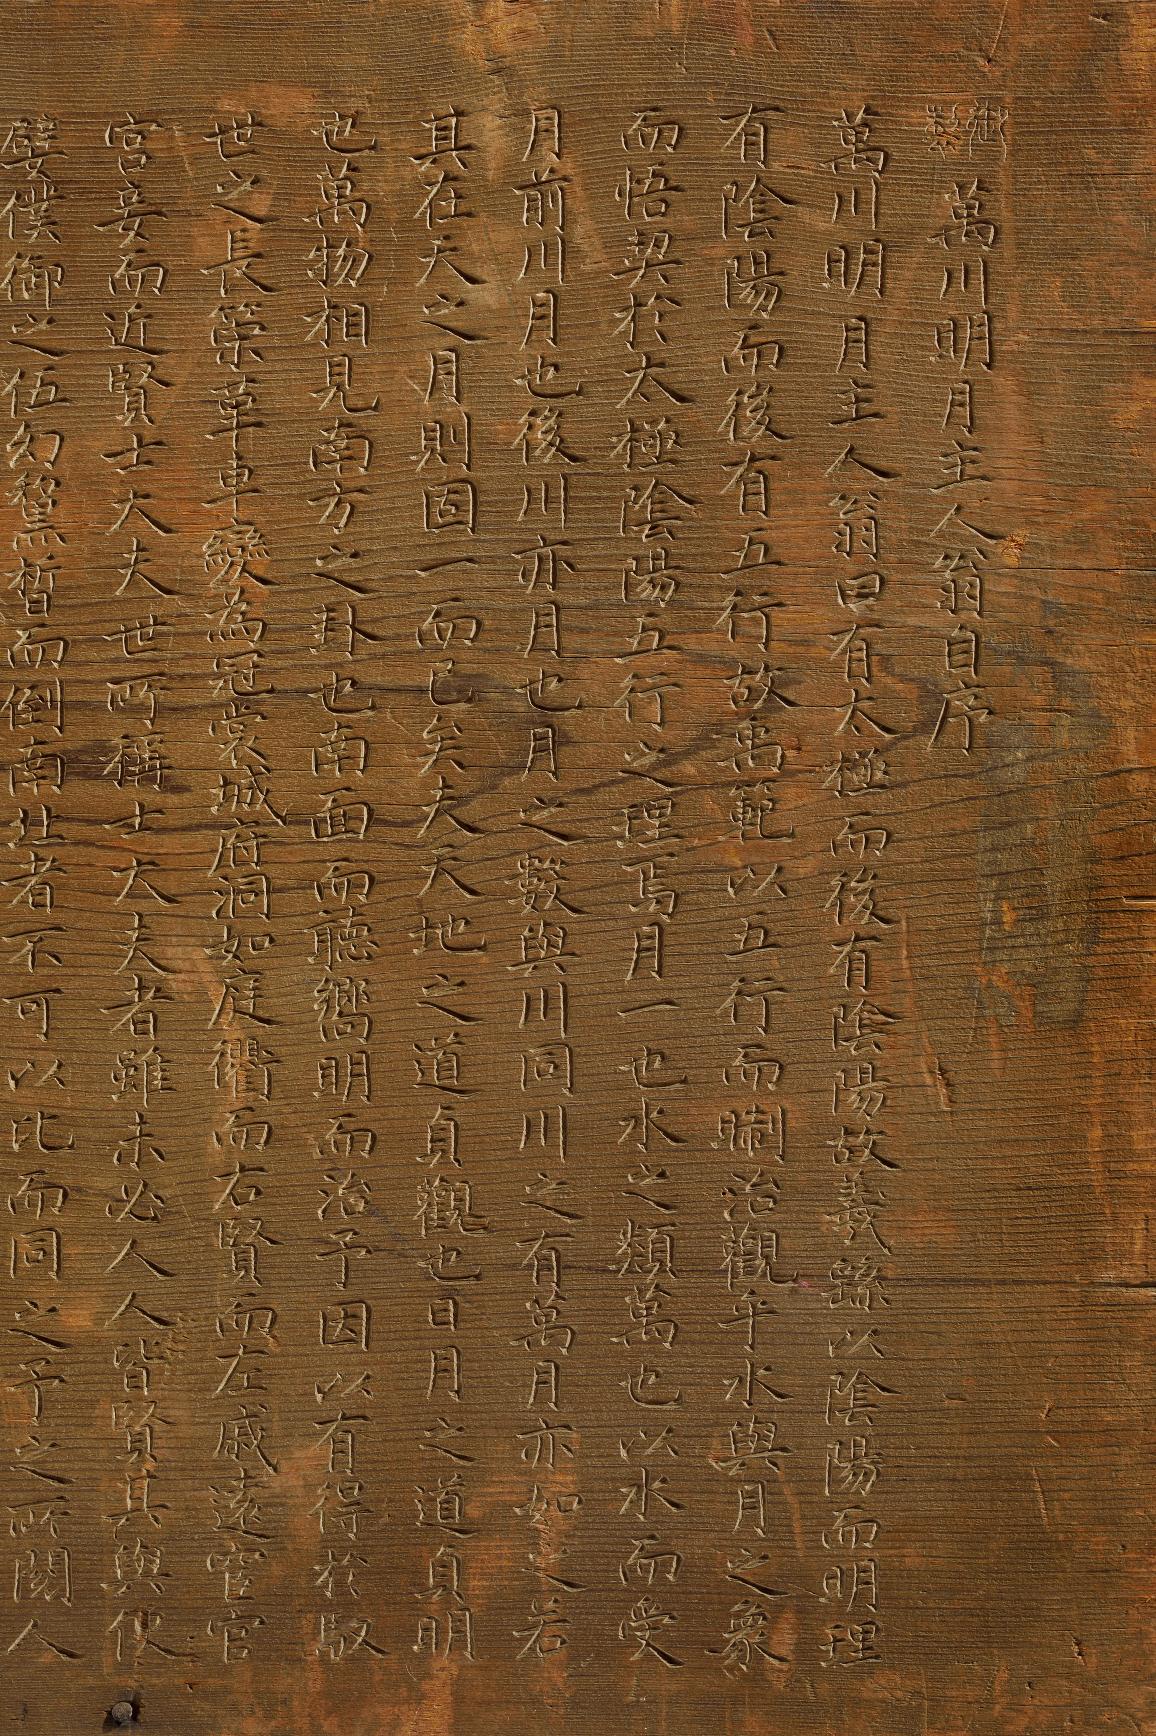 御製
萬川明月主人翁自序
萬川明月主人翁曰有太極而後有陰陽故羲繇以陰陽而明理
有陰陽而後有五行故禹範以五行而晣治觀乎水與月之象
而悟契於太極陰陽五行之理焉月一也水之類萬也以水而受
月前川月也後川亦月也月之數與川同川之有萬月亦如之若
其在天之月則固一而已矣夫天地之道貞觀也日月之道貞明
也萬物相見南方之卦也南面而聽嚮明而治予因以有得於馭
世之長策革車變為冠裳城府洞如庭衢而右賢而左戚遠宦官
宮妾而近賢士大夫世所稱士大夫者雖未必人人皆賢其與便
嬖僕御之伍幻黧晳而倒南北者不可以比而同之予之所閱人